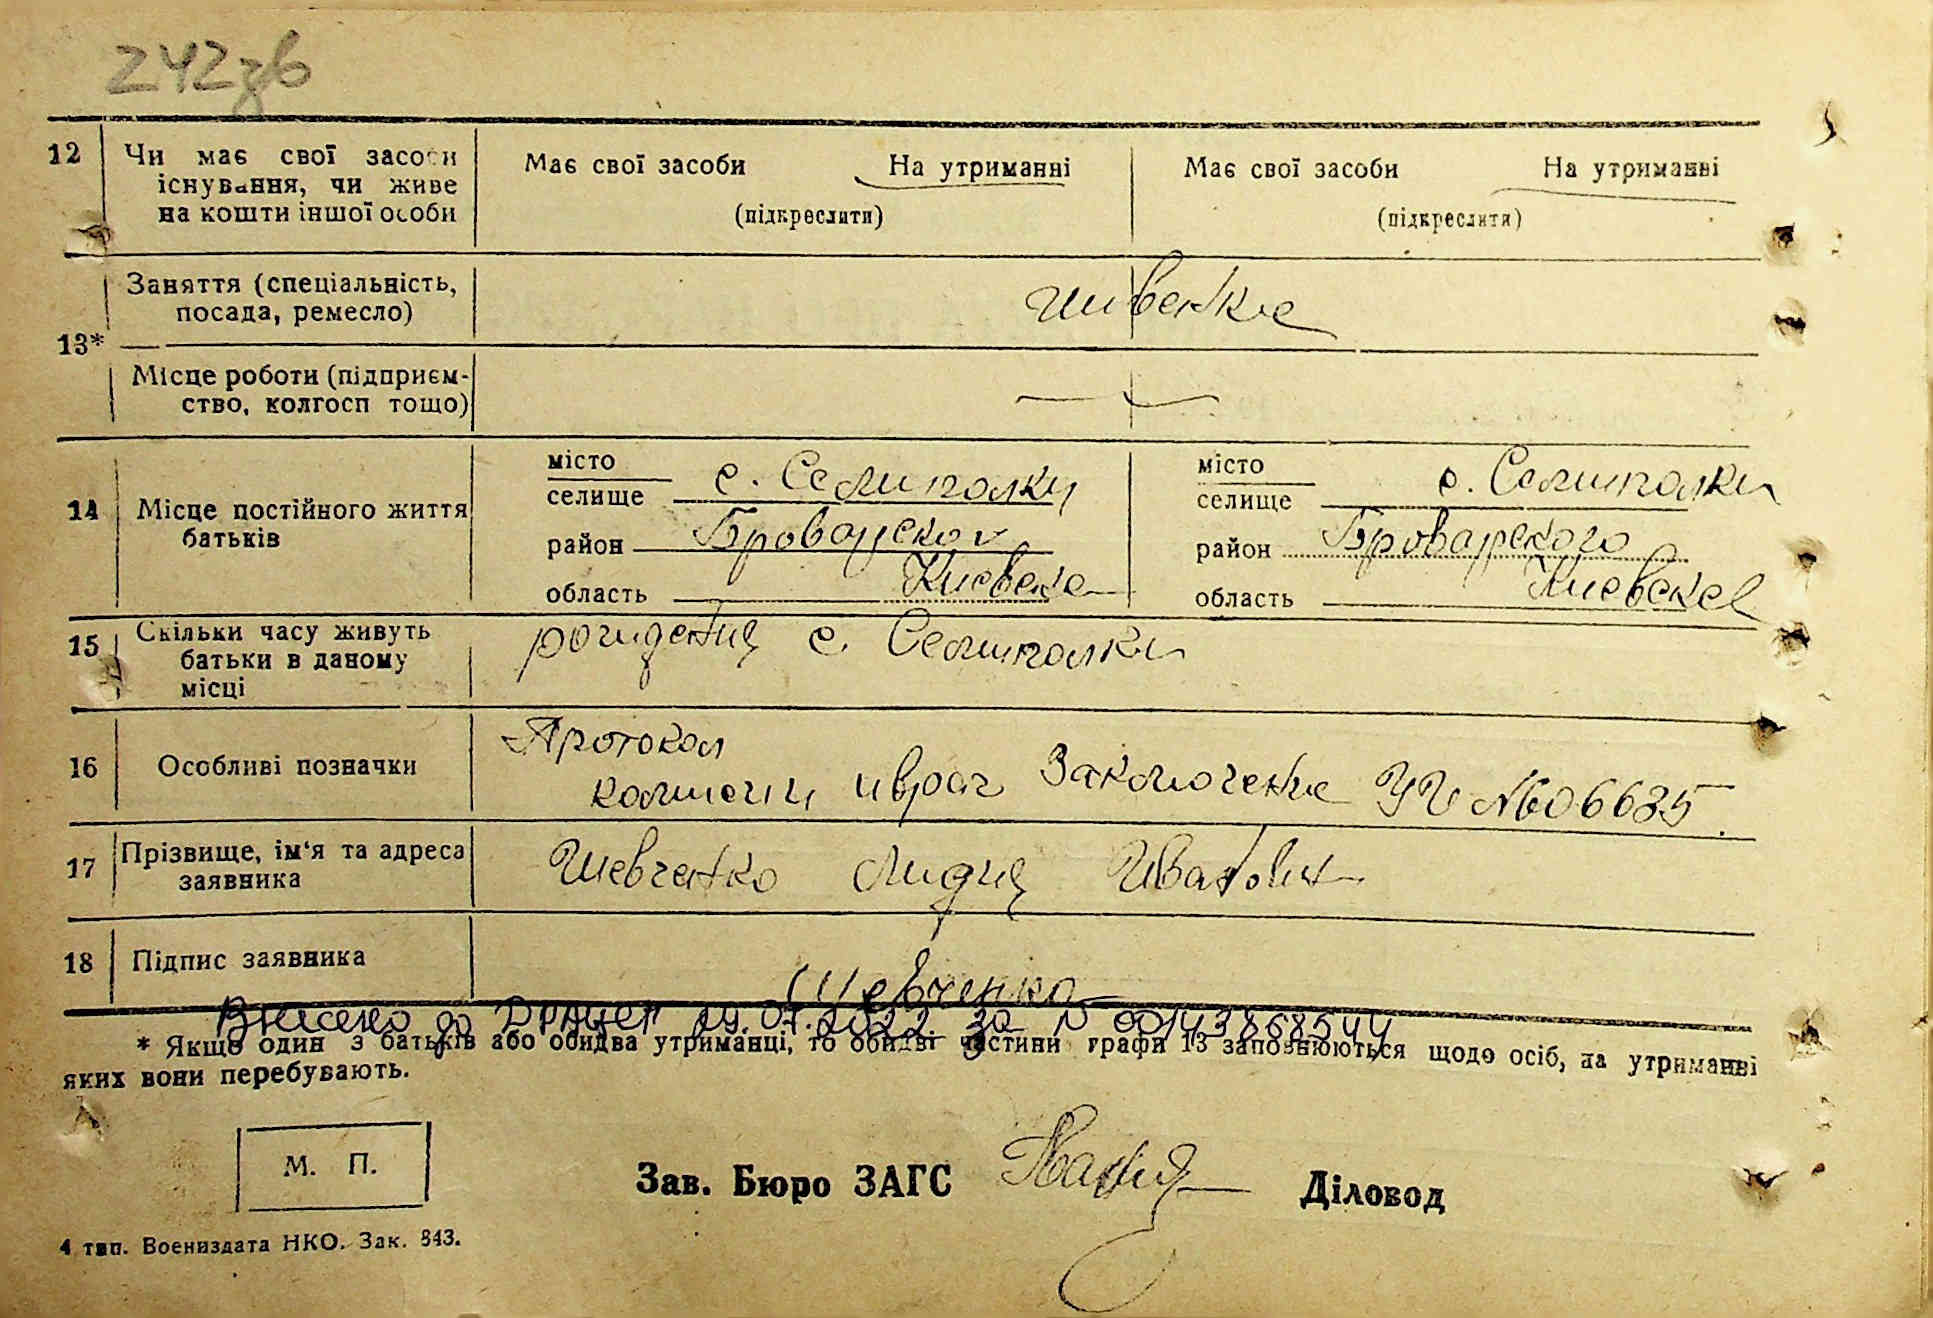 242зв
12 Чи має свої засоби Має свої засоби На утриманні Має свої засоби На утриманні
існування, чи живе
на кошти іншої особи (підкреслити) (підкреслити)
13* Заняття (спеціальність,
посада, ремесло)
Місце роботи (підприєм-
ство, колгосп тощо) —
14 Місце постійного життя
батьків
місто
селище с. Семиполки
район Броварског
область Киевска
місто
селище с. Семиполки
район Броварского
область Киевска
15 Скільки часу живуть рождения с. Семиполки
батьки в даному
місці
16 Особливі позначки Протокол
комисии и врач Заключение № 606635
17 Прізвище, ім'я та адреса Шевченко Лидия Ивановн
заявника
18 Підпис заявника Шевченко
Внесено до ДРАЦСГ 29.07.2022 за № 00143868544
* Якщо один з батьків або обидва утриманці, то обидві частини графи 13 заповнюються щодо осіб, на утриманні
яких вони перебувають.
М. П.
Зав. Бюро ЗАГС Діловод
4 тип. Воениздата НКО. Зак. 843.